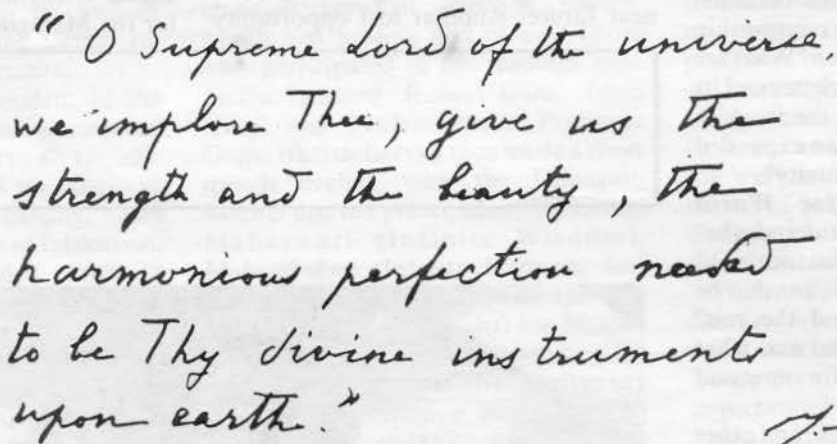 “O Supreme Lord of the universe,
we implore Thee, give us the
strength and the beauty, the
harmonious perfection needed
to be Thy divine instruments
upon earth.”